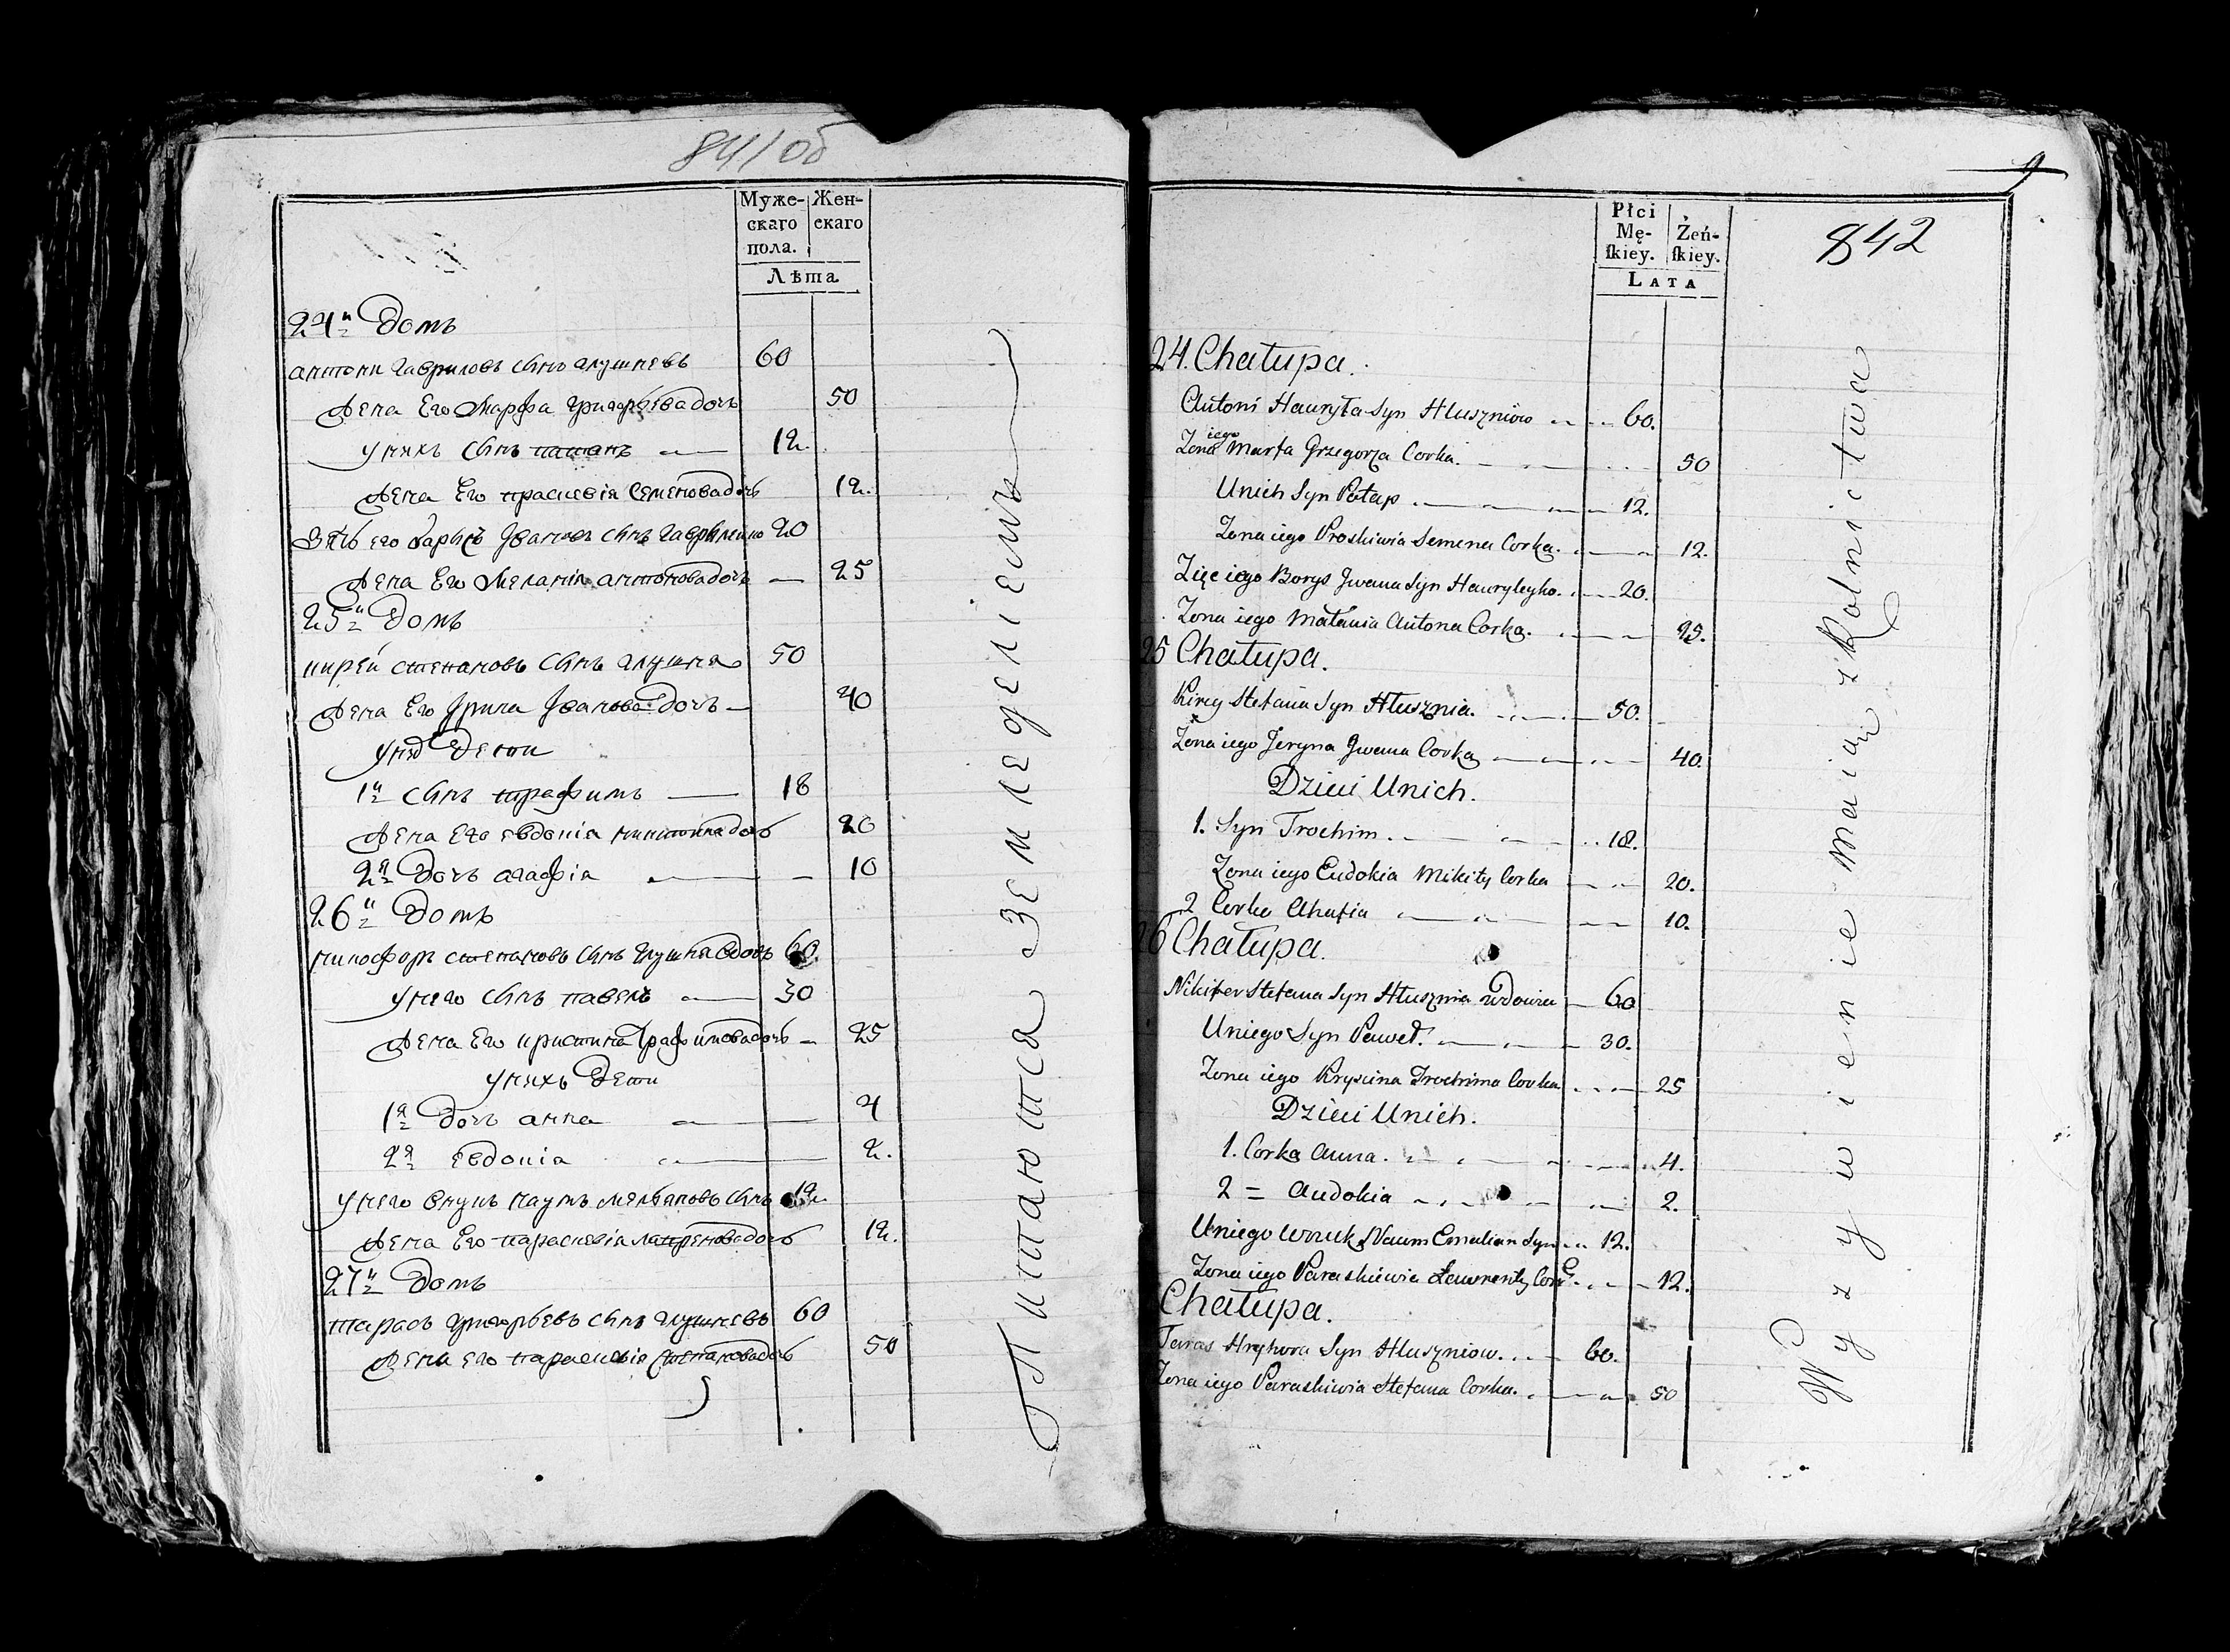 841/об
Муже-
скаго
пола.
Жен-
скаго
Лѣта
24й Домъ
антони гавриловъ сынъ глушневъ 60
Жена Его Марфа григорьева дочь 50
у нихъ сынъ патапъ 12.
Жена Его праскевія Семенова дочь 12.
Зять его барысъ Ивановъ сынъ гаврилейко 20
Жена Его Меланія антонова дочь 25
25й Домъ
кирей степановъ сынъ глушня 50
Жена Его Ирина Иванова дочь 40
у нихъ Дети
1й сынъ трафимъ 18
Жена Его евдокія микитина дочь 20
2я Дочь агафія 10
26й Домъ
никофоръ степановъ сынъ глушня вдовъ 60.
у него сынъ павелъ 30
Жена Его кристина Трафимова дочь 25
у нихъ Дети
1я Дочь анна 4
2я евдокія 2.
у него внукъ наумъ мельяновъ сынъ 12.
Жена Его параскевія лавренова дочь 12.
27й Домъ
тарасъ григорьевъ сынъ глушневъ 60
Жена его параскевія степанова дочь 50
Питаютса Земледеліемъ
842
Płci
Mę-
ſkiey.
Żeń-
ſkiey.
LATA
24. Chałupa.
Antoni Hauryła Syn Hłuszniow 60.
Zona iego Marta Grzegorza Corka. 50
Unich Syn Patap 12.
Zona iego Proskiwia Semena Corka. 12.
Zięć iego Borys Jwana Syn Hauryleyko. 20.
Zona iego Małania Antona Corka. 25.
25 Chałupa.
Kirey Stefana Syn Hłusznia. 50.
Zona iego Jeryna Jwana Corka 40.
Dzieci Unich.
1. Syn Trochim 18.
Zona iego Eudokia Mikity Corka 20.
2 Corka Ahafia 10.
26 Chałupa.
Nikifer Stefana Syn Hłusznia wdowiec 60
Uniego Syn Paweł. 30.
Zona iego Kryscina Trochima Corka 25
Dzieci Unich.
1. Corka Anna. 4.
2 = Audokia 2.
Uniego Wnuk Naum Emalian Syn 12.
Zona iego Paraskiewia Ławrenty Cork. 12.
Chałupa.
Taras Hryhora Syn Hłuszniow. 60.
Zona iego Paraskiwia Stefana Corka. 50
Wyzywienie Maią z Rolnictwa